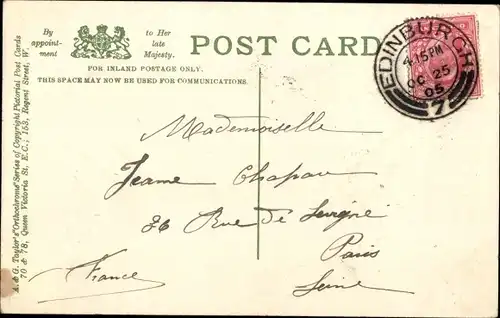 By
appoint-
ment
to Her
late
Majesty.
POST CARD
FOR INLAND POSTAGE ONLY.
THIS SPACE MAY NOW BE USED FOR COMMUNICATIONS.
EDINBURGH
4.15PM
OC 25
05
7
Mademoiselle
Jeanne Chapau
26 Rue de Sévigné
Paris
France
Seine
A. & G. Taylor's "Orthochrome" Series of Copyright Pictorial Post Cards
70 & 78, Queen Victoria St. E.C., 153, Regent Street, W.